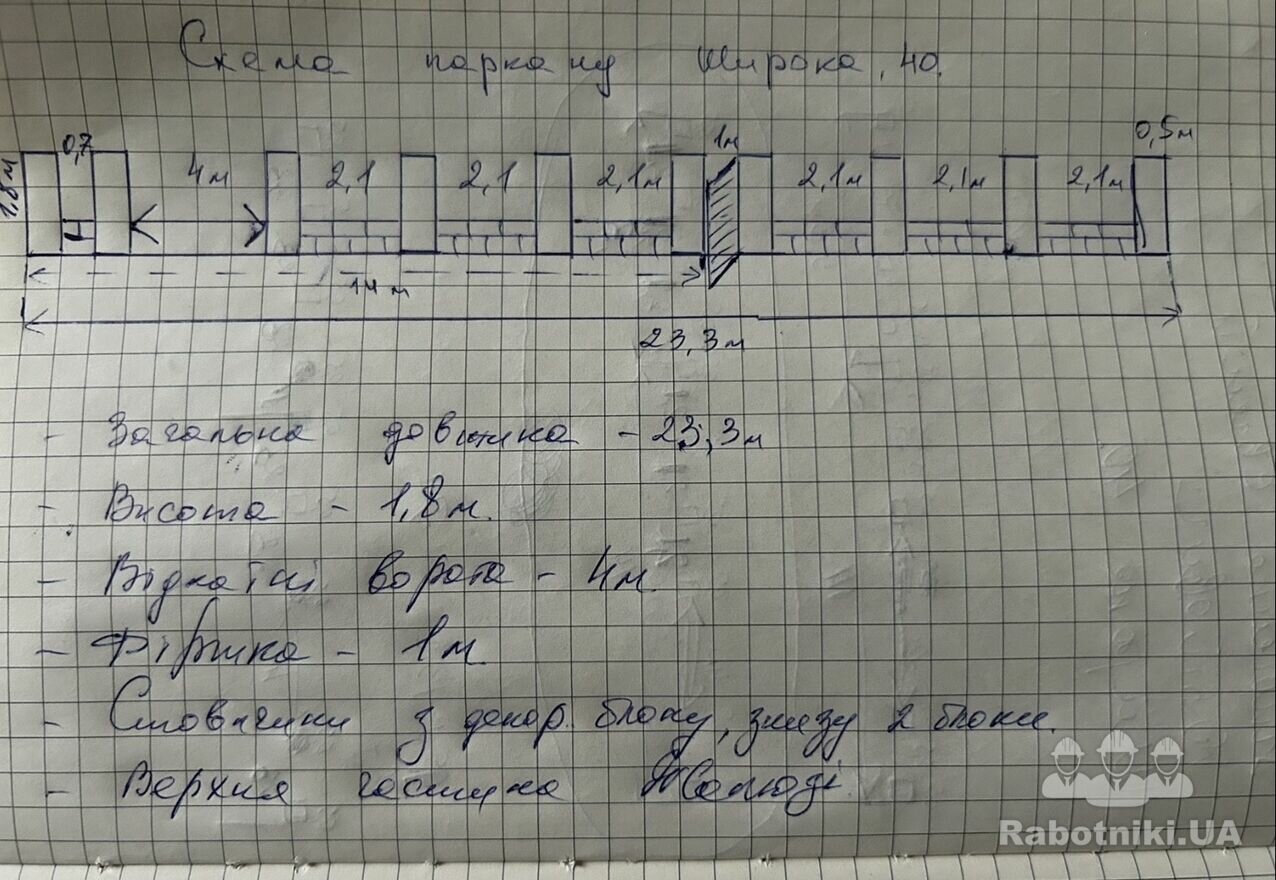 Схема паркану Широка, 40.
0,7 1м 0,5м
1,8м 4м 2,1 2,1 2,1м 2,1м 2,1м 2,1м
14 м
23,3м
- Загальна довжина - 23,3м
- Висота - 1,8м.
- Відкатні ворота - 4м.
- Фіртка - 1м.
- Стовпчики з декор. блоку, знизу 2 блоки.
- Верхня частина Жалюзі.
Rabotniki.UA